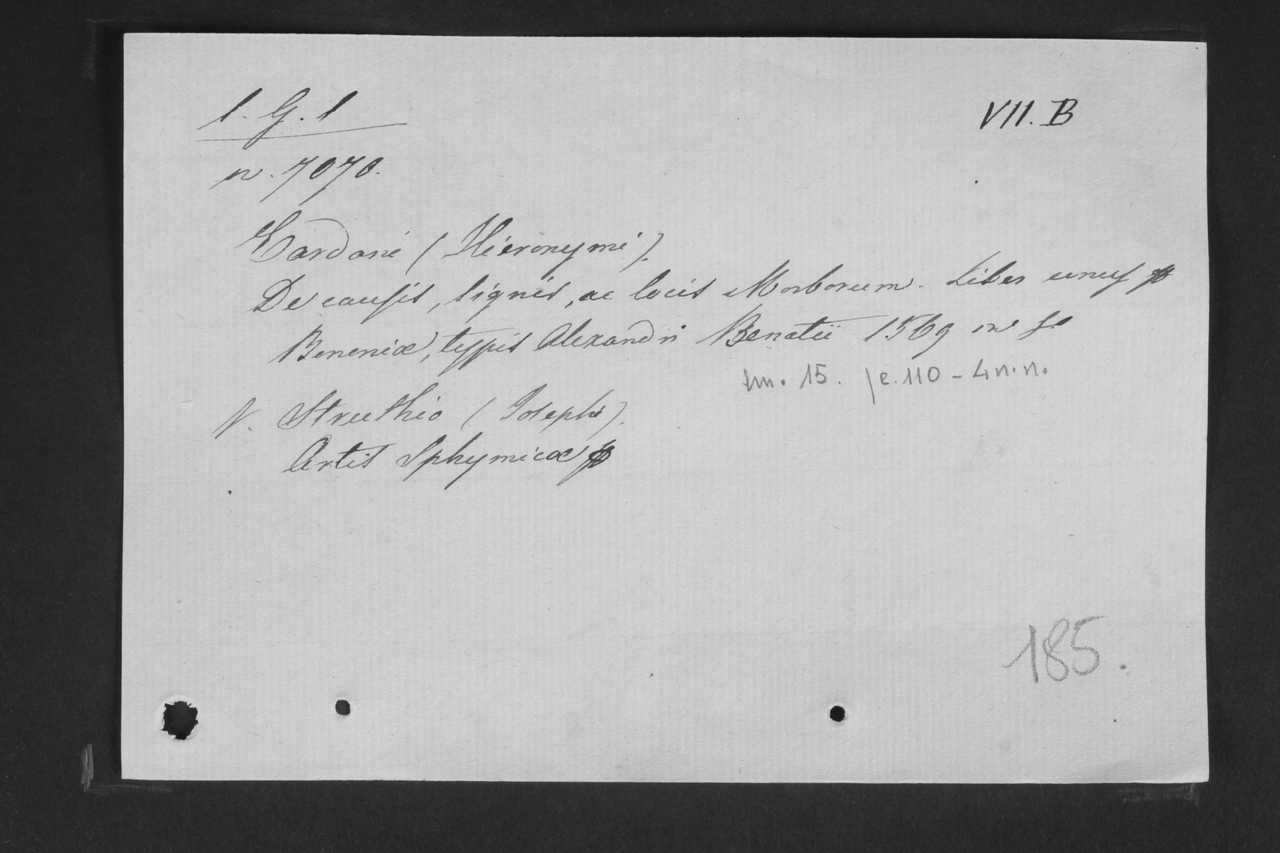 l. G. l
VII. B
n. 7070.
Cardani (Hieronymi).
De causis, signis, ac locis Morborum. Liber unus
Bononiæ, typis Alexandri Benatii 1569 in
4n. 15. pc. 110 - 4n.n.
V. Struthio (Josephi).
Artis Sphymicæ
185.